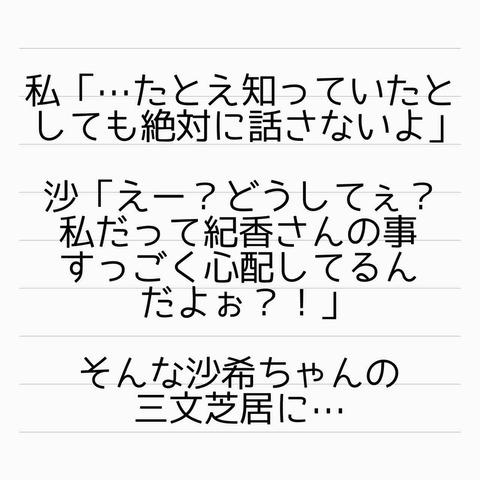 私「…たとえ知っていたと
しても絶対に話さないよ」
沙「えー？どうしてぇ？
私だって紀香さんの事
すっごく心配してるん
だよぉ？！」
そんな沙希ちゃんの
三文芝居に…